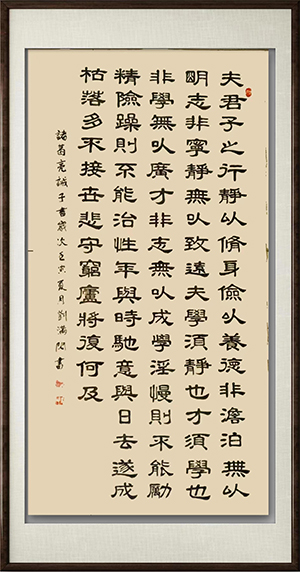 夫君子之行靜以脩身儉以養德非澹泊無以
明志非寧靜無以致遠夫學須靜也才須學也
非學無以廣才非志無以成學淫慢則不能勵
精險躁則不能治性年與時馳意與日去遂成
枯落多不接世悲守窮廬將復何及
諸葛亮誡子書歲次壬寅夏月劉滿書